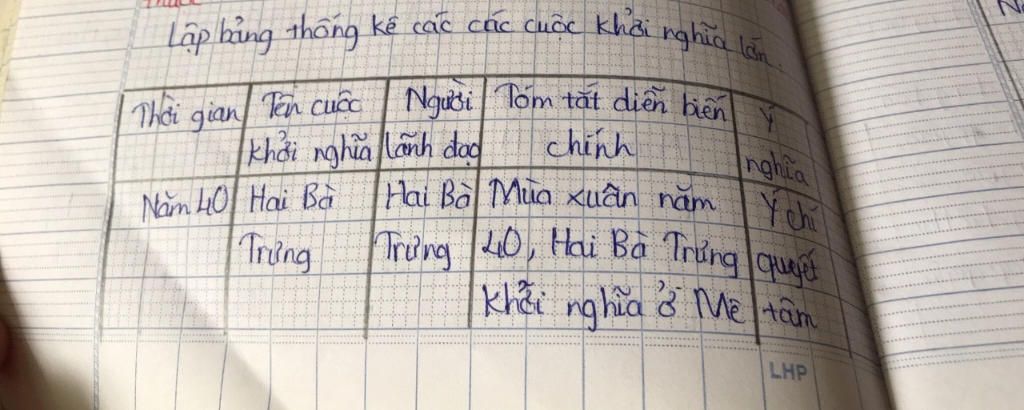 Lập bảng thống kê các các cuộc khởi nghĩa lớn.
Thời gian Tên cuộc Người Tóm tắt diễn biến Ý
khởi nghĩa lãnh đạo chính nghĩa
Năm 40 Hai Bà Hai Bà Mùa xuân năm Ý chí
Trưng Trưng 40, Hai Bà Trưng quyết
khởi nghĩa ở Mê tâm
LHP